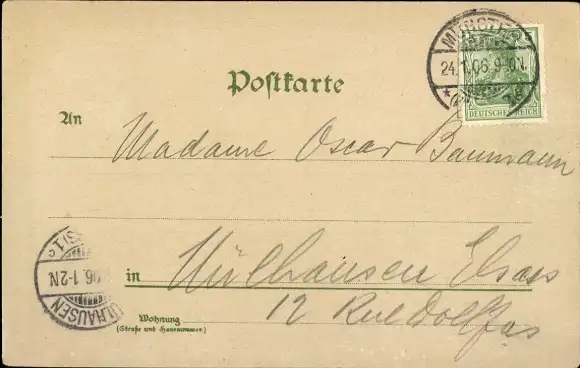 Postkarte
24.1.06.9-10V.
DEUTSCHES REICH
An
Madame Oscar Baumann
in Mülhausen Elsass
12 Rue Dollfus
Wohnung
(Straße und Hausnummer)
06.1-2N